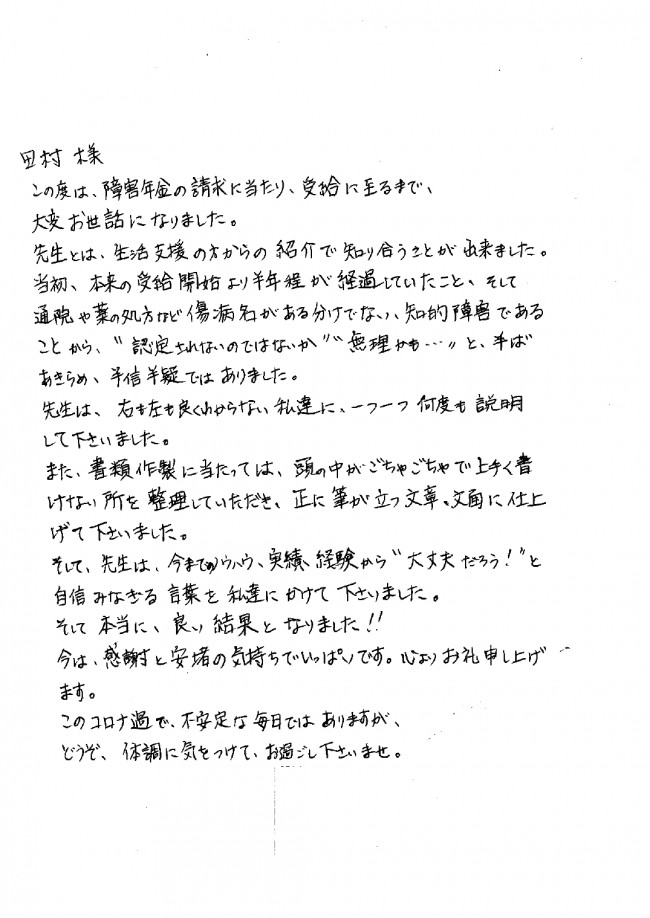 田村 様
この度は、障害年金の請求に当たり、受給に至るまで、
大変お世話になりました。
先生とは、生活支援の方からの紹介で知り合うことが出来ました。
当初、本来の受給開始より半年程が経過していたこと、そして
通院や薬の処方など傷病名がある分けでない、知的障害である
ことから、“認定されないのではないか”“無理かも…〟と、半ば
あきらめ、半信半疑ではありました。
先生は、右も左も良くわからない私達に、一つ一つ何度も説明
して下さいました。
また、書類作製に当たっては、頭の中がごちゃごちゃで上手く書
けない所を整理していただき、正に筆が立つ文章、文面に仕上
げて下さいました。
そして、先生は、今までのノウハウ、実績、経験から“大丈夫だろう！”と
自信みなぎる言葉を私達にかけて下さいました。
そして本当に、良い結果となりました!!
今は、感謝と安堵の気持ちでいっぱいです。心よりお礼申し上げ
ます。
このコロナ過で、不安定な毎日ではありますが、
どうぞ、体調に気をつけて、お過ごし下さいませ。